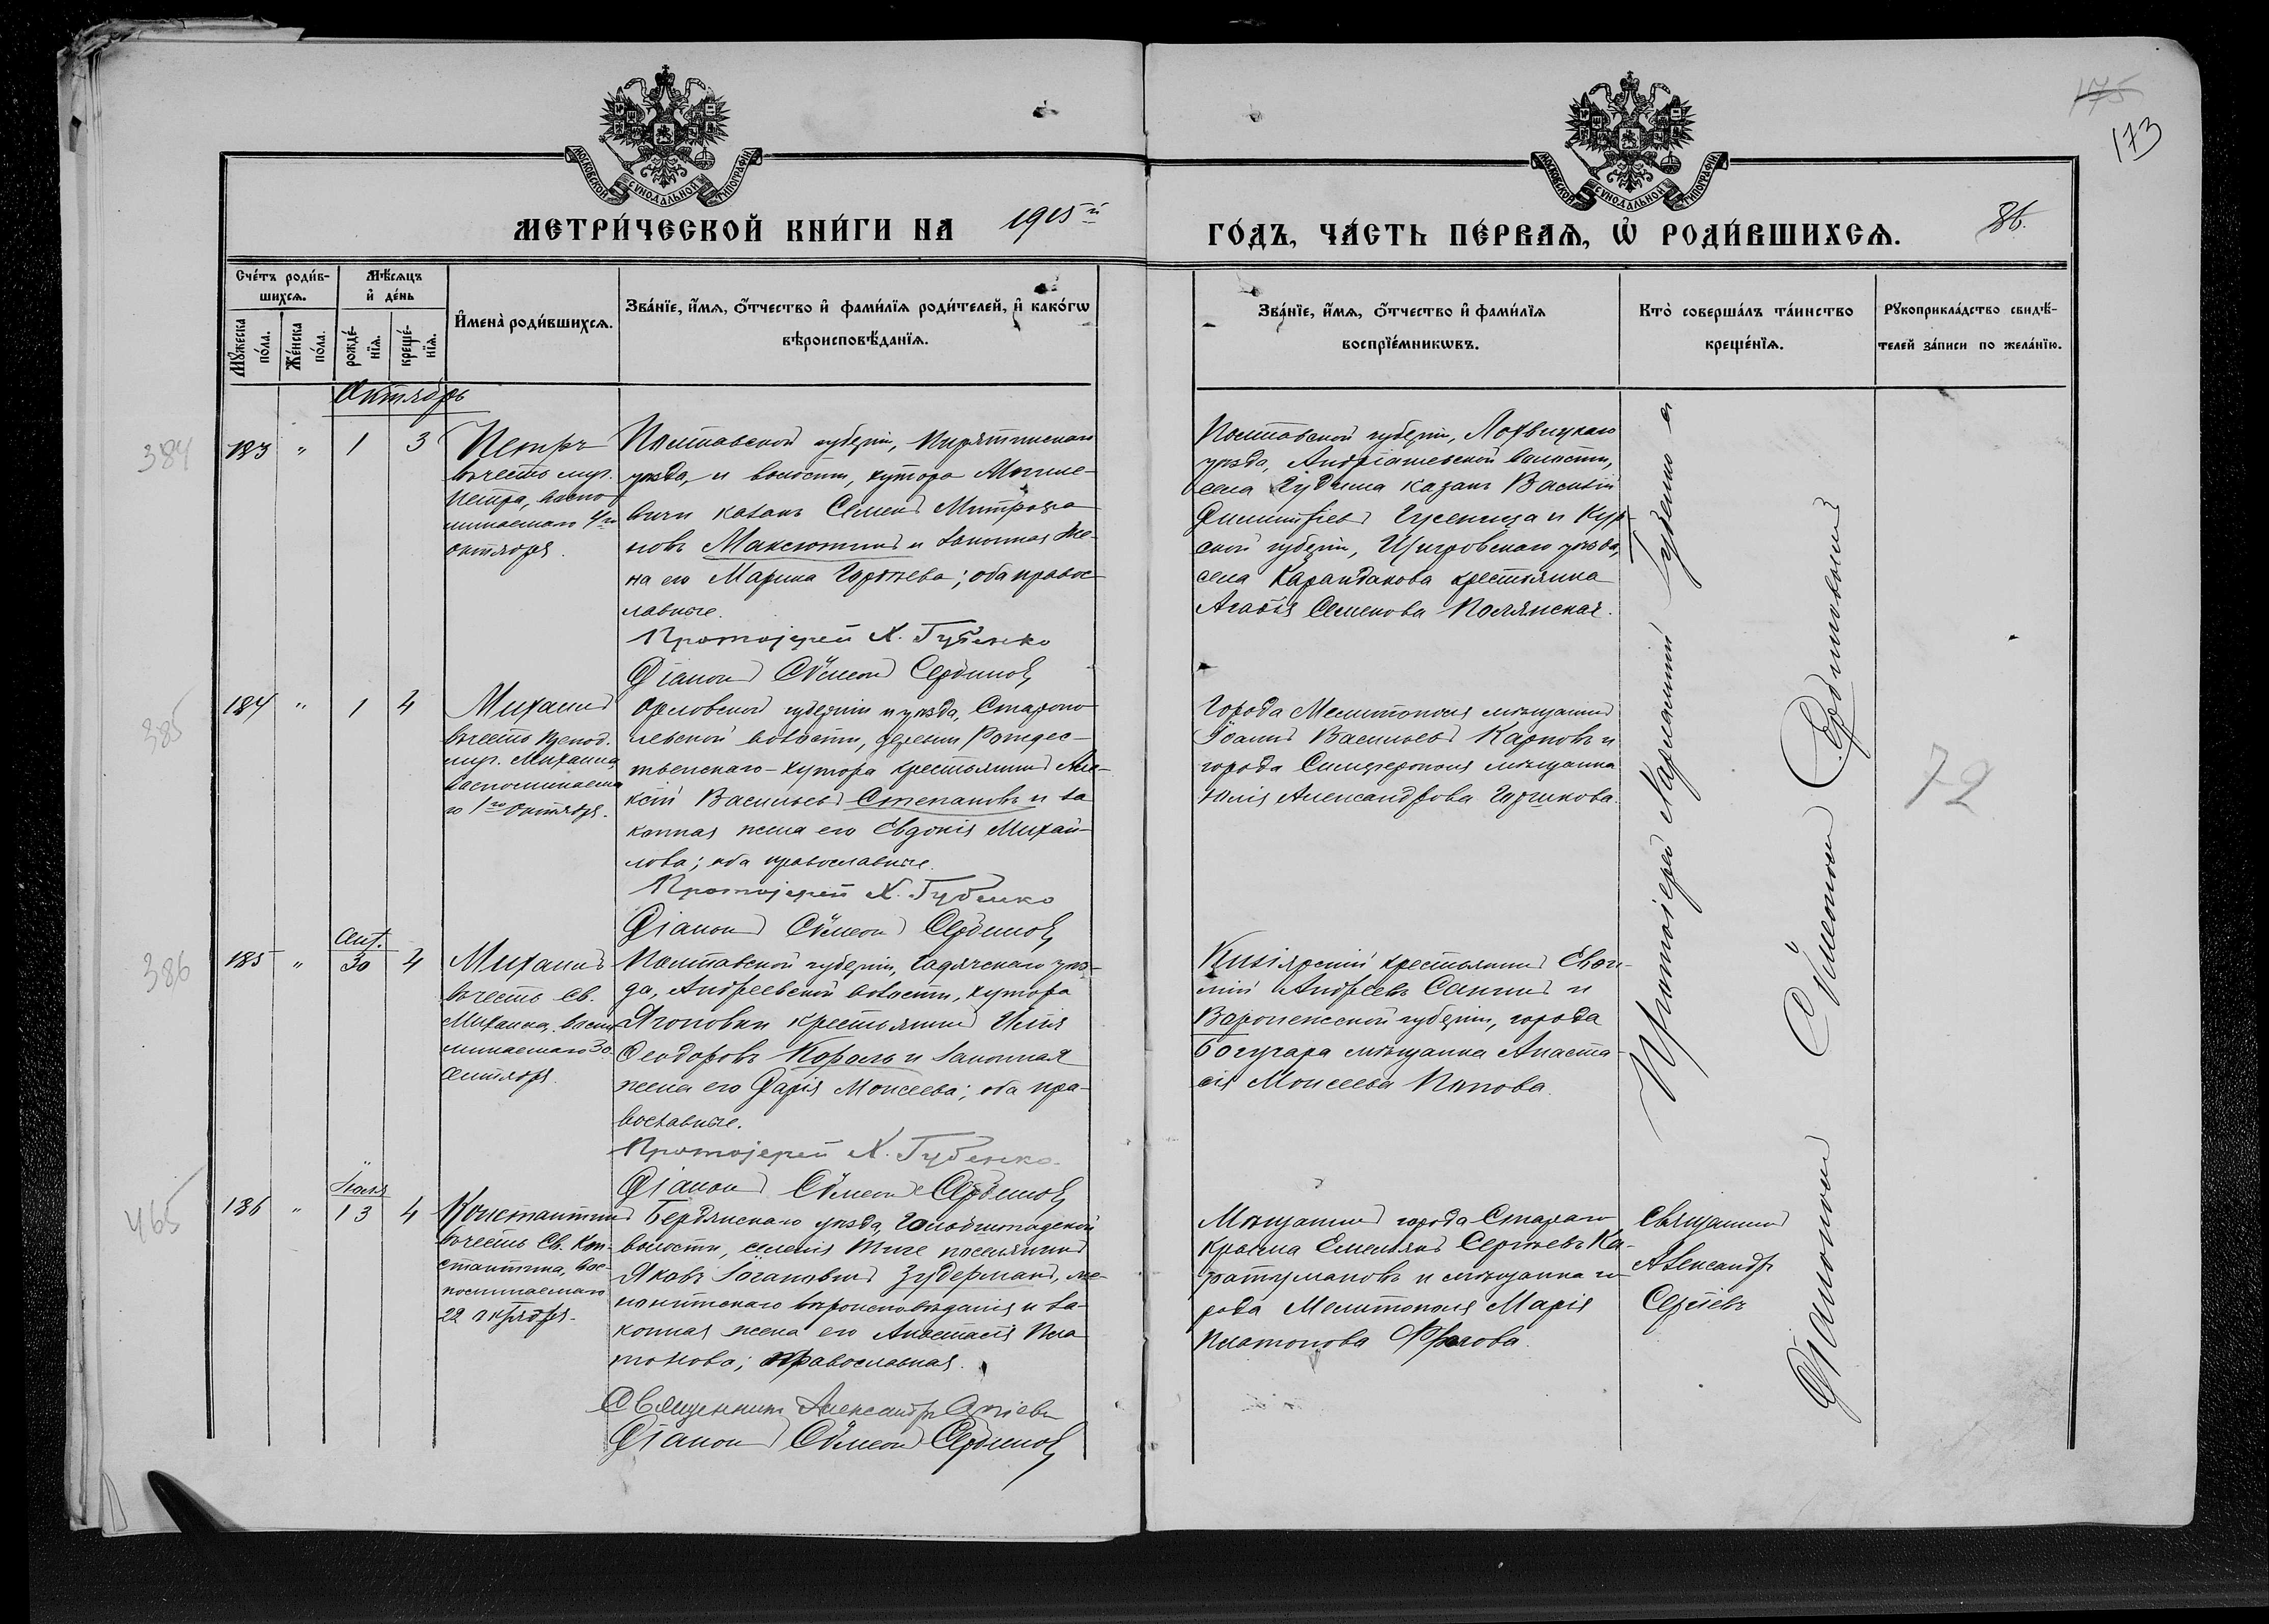 175
173
МОСКОВСКОЙ СѴНОДАЛЬНОЙ ТИПОГРАФІИ
МОСКОВСКОЙ СѴНОДАЛЬНОЙ ТИПОГРАФІИ
МЕТРИ́ЧЕСКОЙ КНИ́ГИ НА 1915й
ГО́ДЪ, ЧА́СТЬ ПЕ́РВАѦ, Ѡ҆ РОДИ́ВШИХСѦ.
86.
Сче́тъ роди́в-
шихсѧ.
Мꙋ́жеска
по́ла.
Же́нска
по́ла.
Мѣ́сѧцъ
и҆ де́нь
рожде́-
нїѧ.
креще́-
нїѧ.
И҆мена̀ роди́вшихсѧ.
Зва́нїе, и҆́мѧ, ѻ҆́тчество и҆ фами́лїѧ роди́телей, и҆ како́гѡ
вѣроисповѣ́данїѧ.
Зва́нїе, и҆́мѧ, ѻ҆́тчество и҆ фами́лїѧ
воспрїе́мникѡвъ.
Кто̀ соверша́лъ та́инство
креще́нїѧ.
Рꙋкоприкла́дство свидѣ́-
телей за́писи по жела́нїю.
Октябрь
384
183 " 1 3
Петръ
въ честь муч.
Петра, воспо-
минаемаго 4го
октября.
Полтавской губерніи, Пирятинскаго
уѣзда, и волости, хутора Могиле-
вичи казакъ Семенъ Митрофа
новъ Максютинъ и законная же-
на его Марина Гордѣева; оба правос-
лавные.
Протоіерей Х. Губенко
Діаконъ Сѵмеонъ Сербиновъ
Полтавской губерніи, Лохвицкаго
уѣзда, Андріашевской волости,
села Гудима казакъ Василій
Филипіевъ Гусеница и Кур-
ской губерніи, Щигровскаго уѣзда,
села Карандакова крестьянка
Агафія Семенова Полянская.
385
184 " 1 4
Михаилъ
въ честь препод.
муч. Михаила,
воспоминаема
го 1го октября.
Орловской губерніи и уѣзда, Старопо
левской волости, деревни Рождес-
твенскаго-хутора крестьянинъ Але-
ксѣй Васильевъ Степановъ и за
конная жена его Евдокія Михай-
лова; оба православные.
Протоіерей Х. Губенко
Діаконъ Сѵмеонъ Сербиновъ
Города Мелитополя мѣщанинъ
Іоаннъ Васильевъ Карповъ и
города Симферополя мѣщанка
Юлія Александрова Горшкова.
72
386
Сент.
185 " 30 4
Михаилъ
въ честь св.
Михаила, воспо
минаемаго 30
Сентября.
Полтавской губерніи, Гадячскаго уѣз-
да, Андреевской волости, хутора
Ягоповки крестьянинъ Илія
Ѳеодоровъ Король и законная
жена его Дарія Моисеева; оба пра-
вославные.
Протоіерей Х. Губенко
Діаконъ Сѵмеонъ Сербиновъ
Кизіярскій крестьянинъ Евѳи-
мій Андреевъ Санинъ и
Воронежской губерніи, города
Богучара мѣщанка Анаста-
сія Моисеева Попова.
Протоіерей Харлампій Губенко и
Діаконъ Сѵмеонъ Сербиновъ
465
Іюля
186 " 13 4
Константинъ
въ честь Св. Кон-
стантина, вос-
поминаемаго
22 октября.
Бердянскаго уѣзда,
волости, селенія Тиге поселянинъ
Яковъ Іогановичъ Зудерманъ, ме-
нонитскаго вѣроисповѣданія и за-
конная жена его Анастасія Пла
тонова; православная.
Священникъ Александръ Сергіевъ
Діаконъ Сѵмеонъ Сербиновъ
Мѣщанинъ города Стараго
Крыма Емельянъ Сергѣевъ Ка-
ратумановъ и мѣщанка го-
рода Мелитополя Марія
Платонова Фролова.
Священникъ
Александръ
Сергіевъ